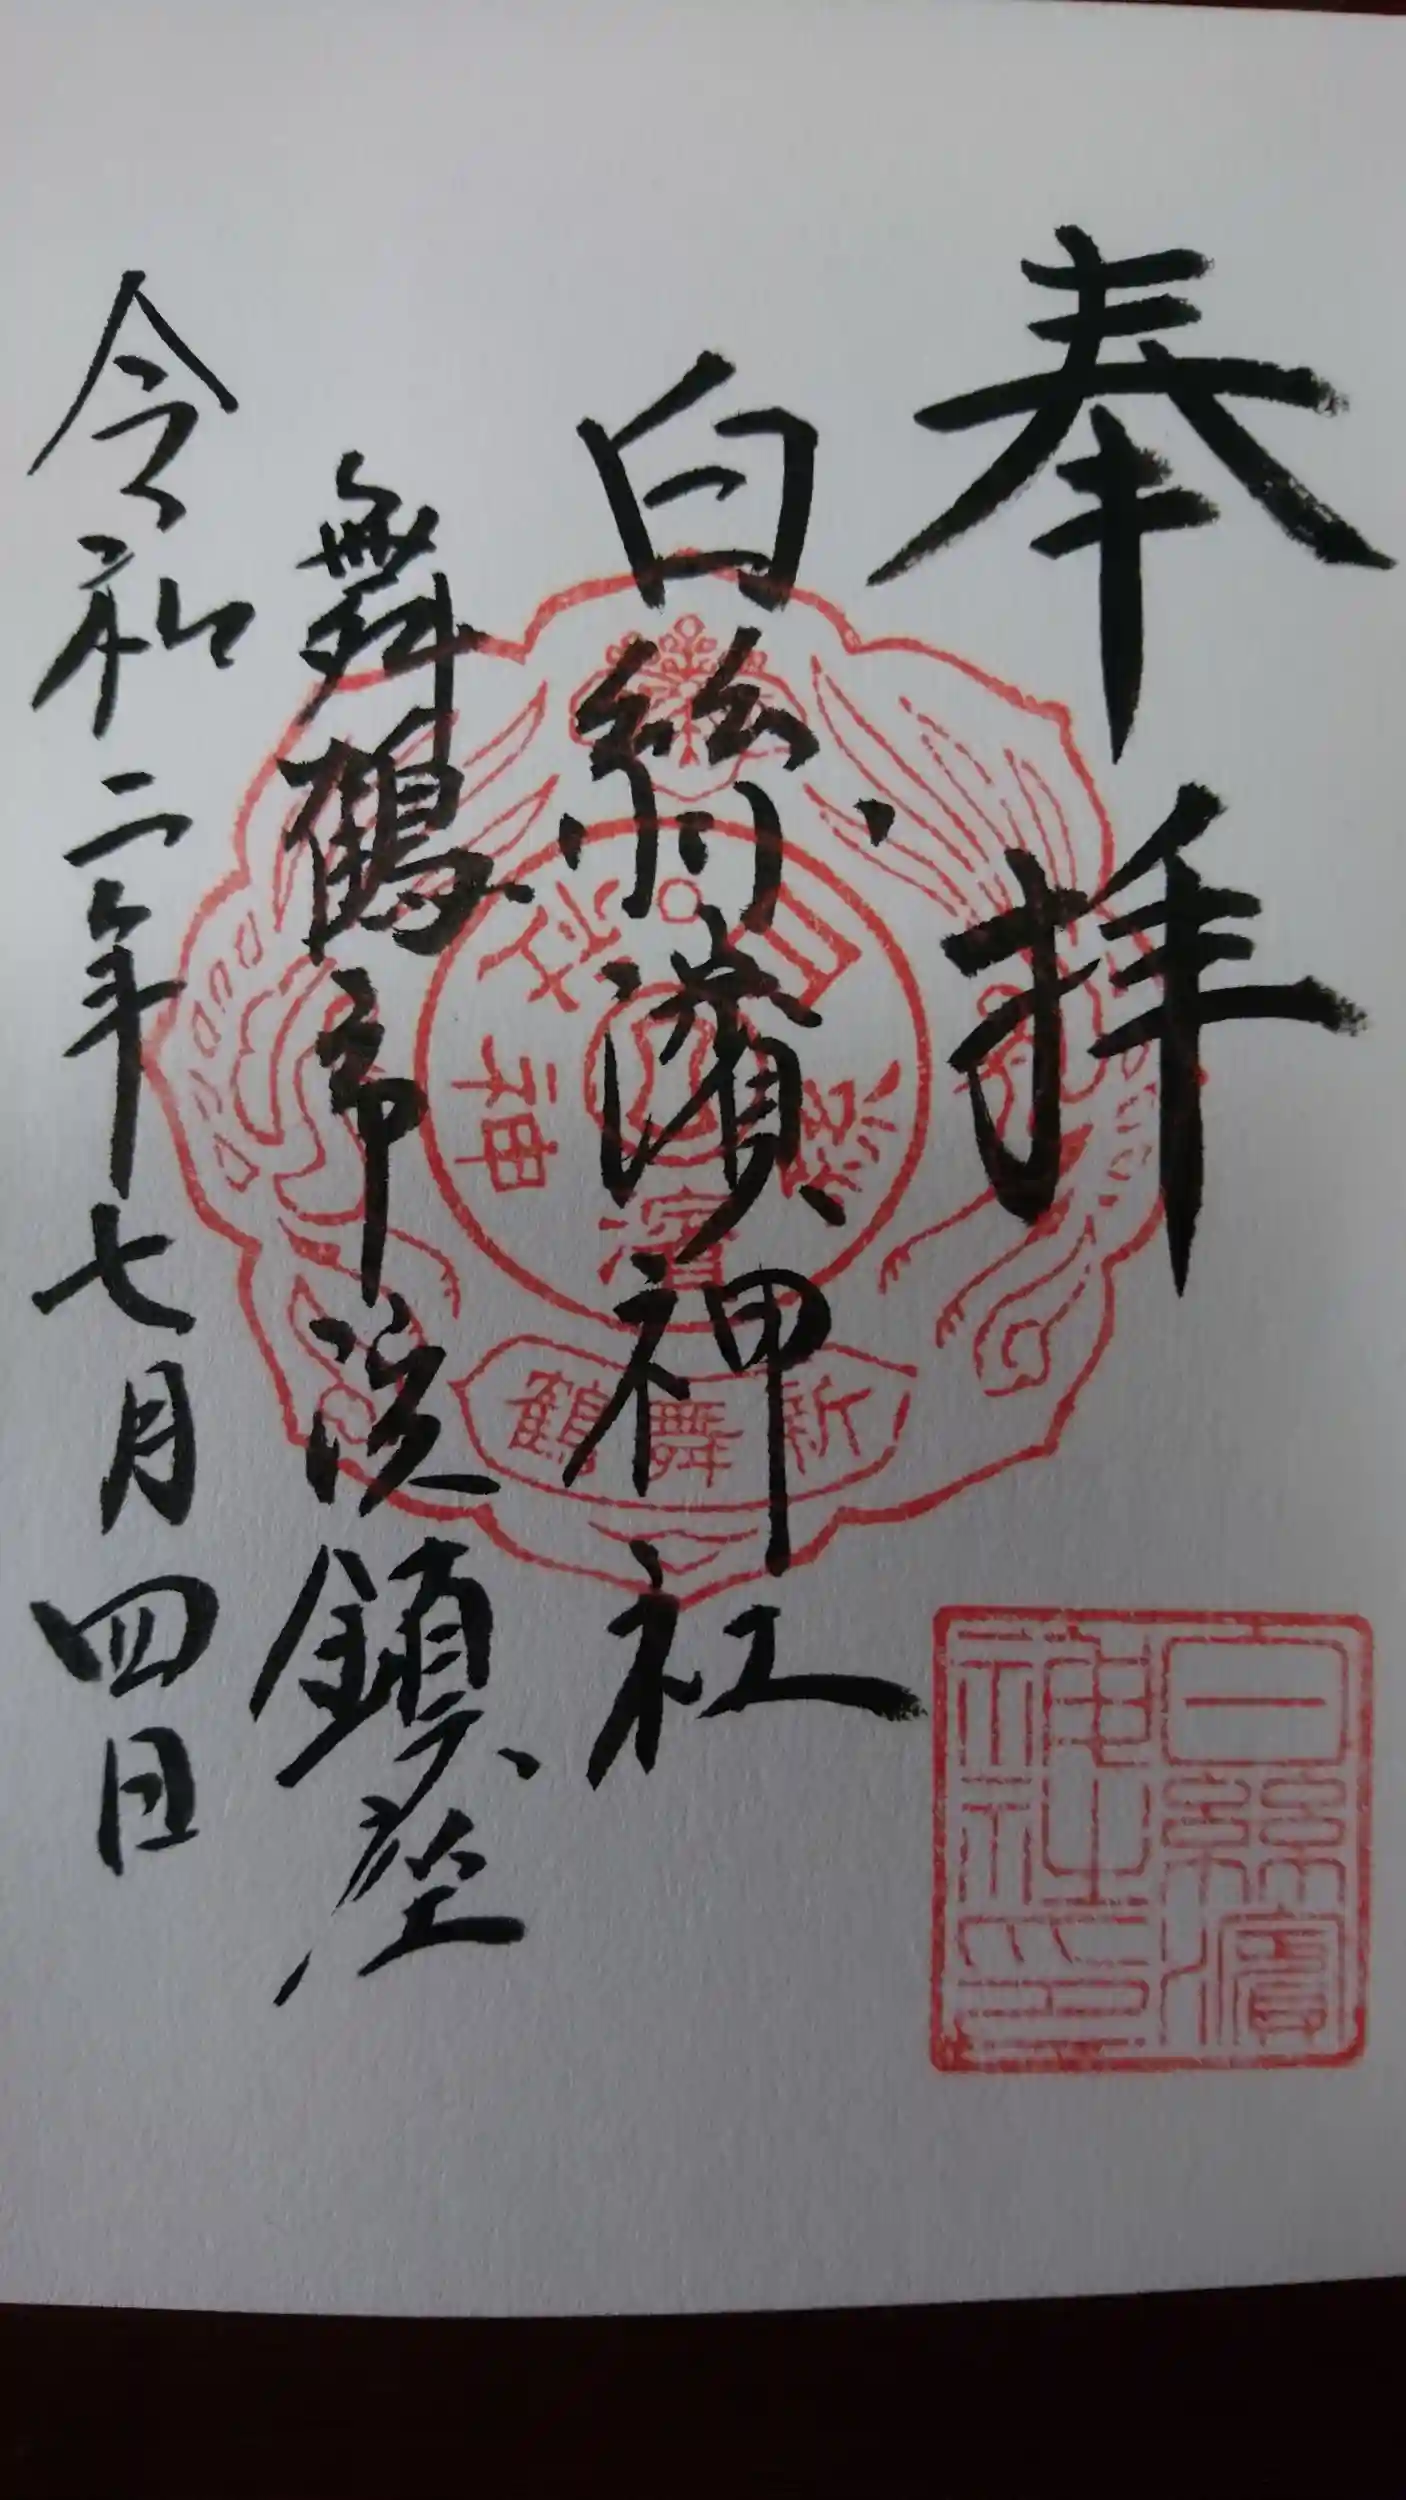 奉拝
白絲濱神社
舞鶴市浜鎮座
令和二年七月四日
白絲濱神社
新舞鶴
白絲濱
神社印